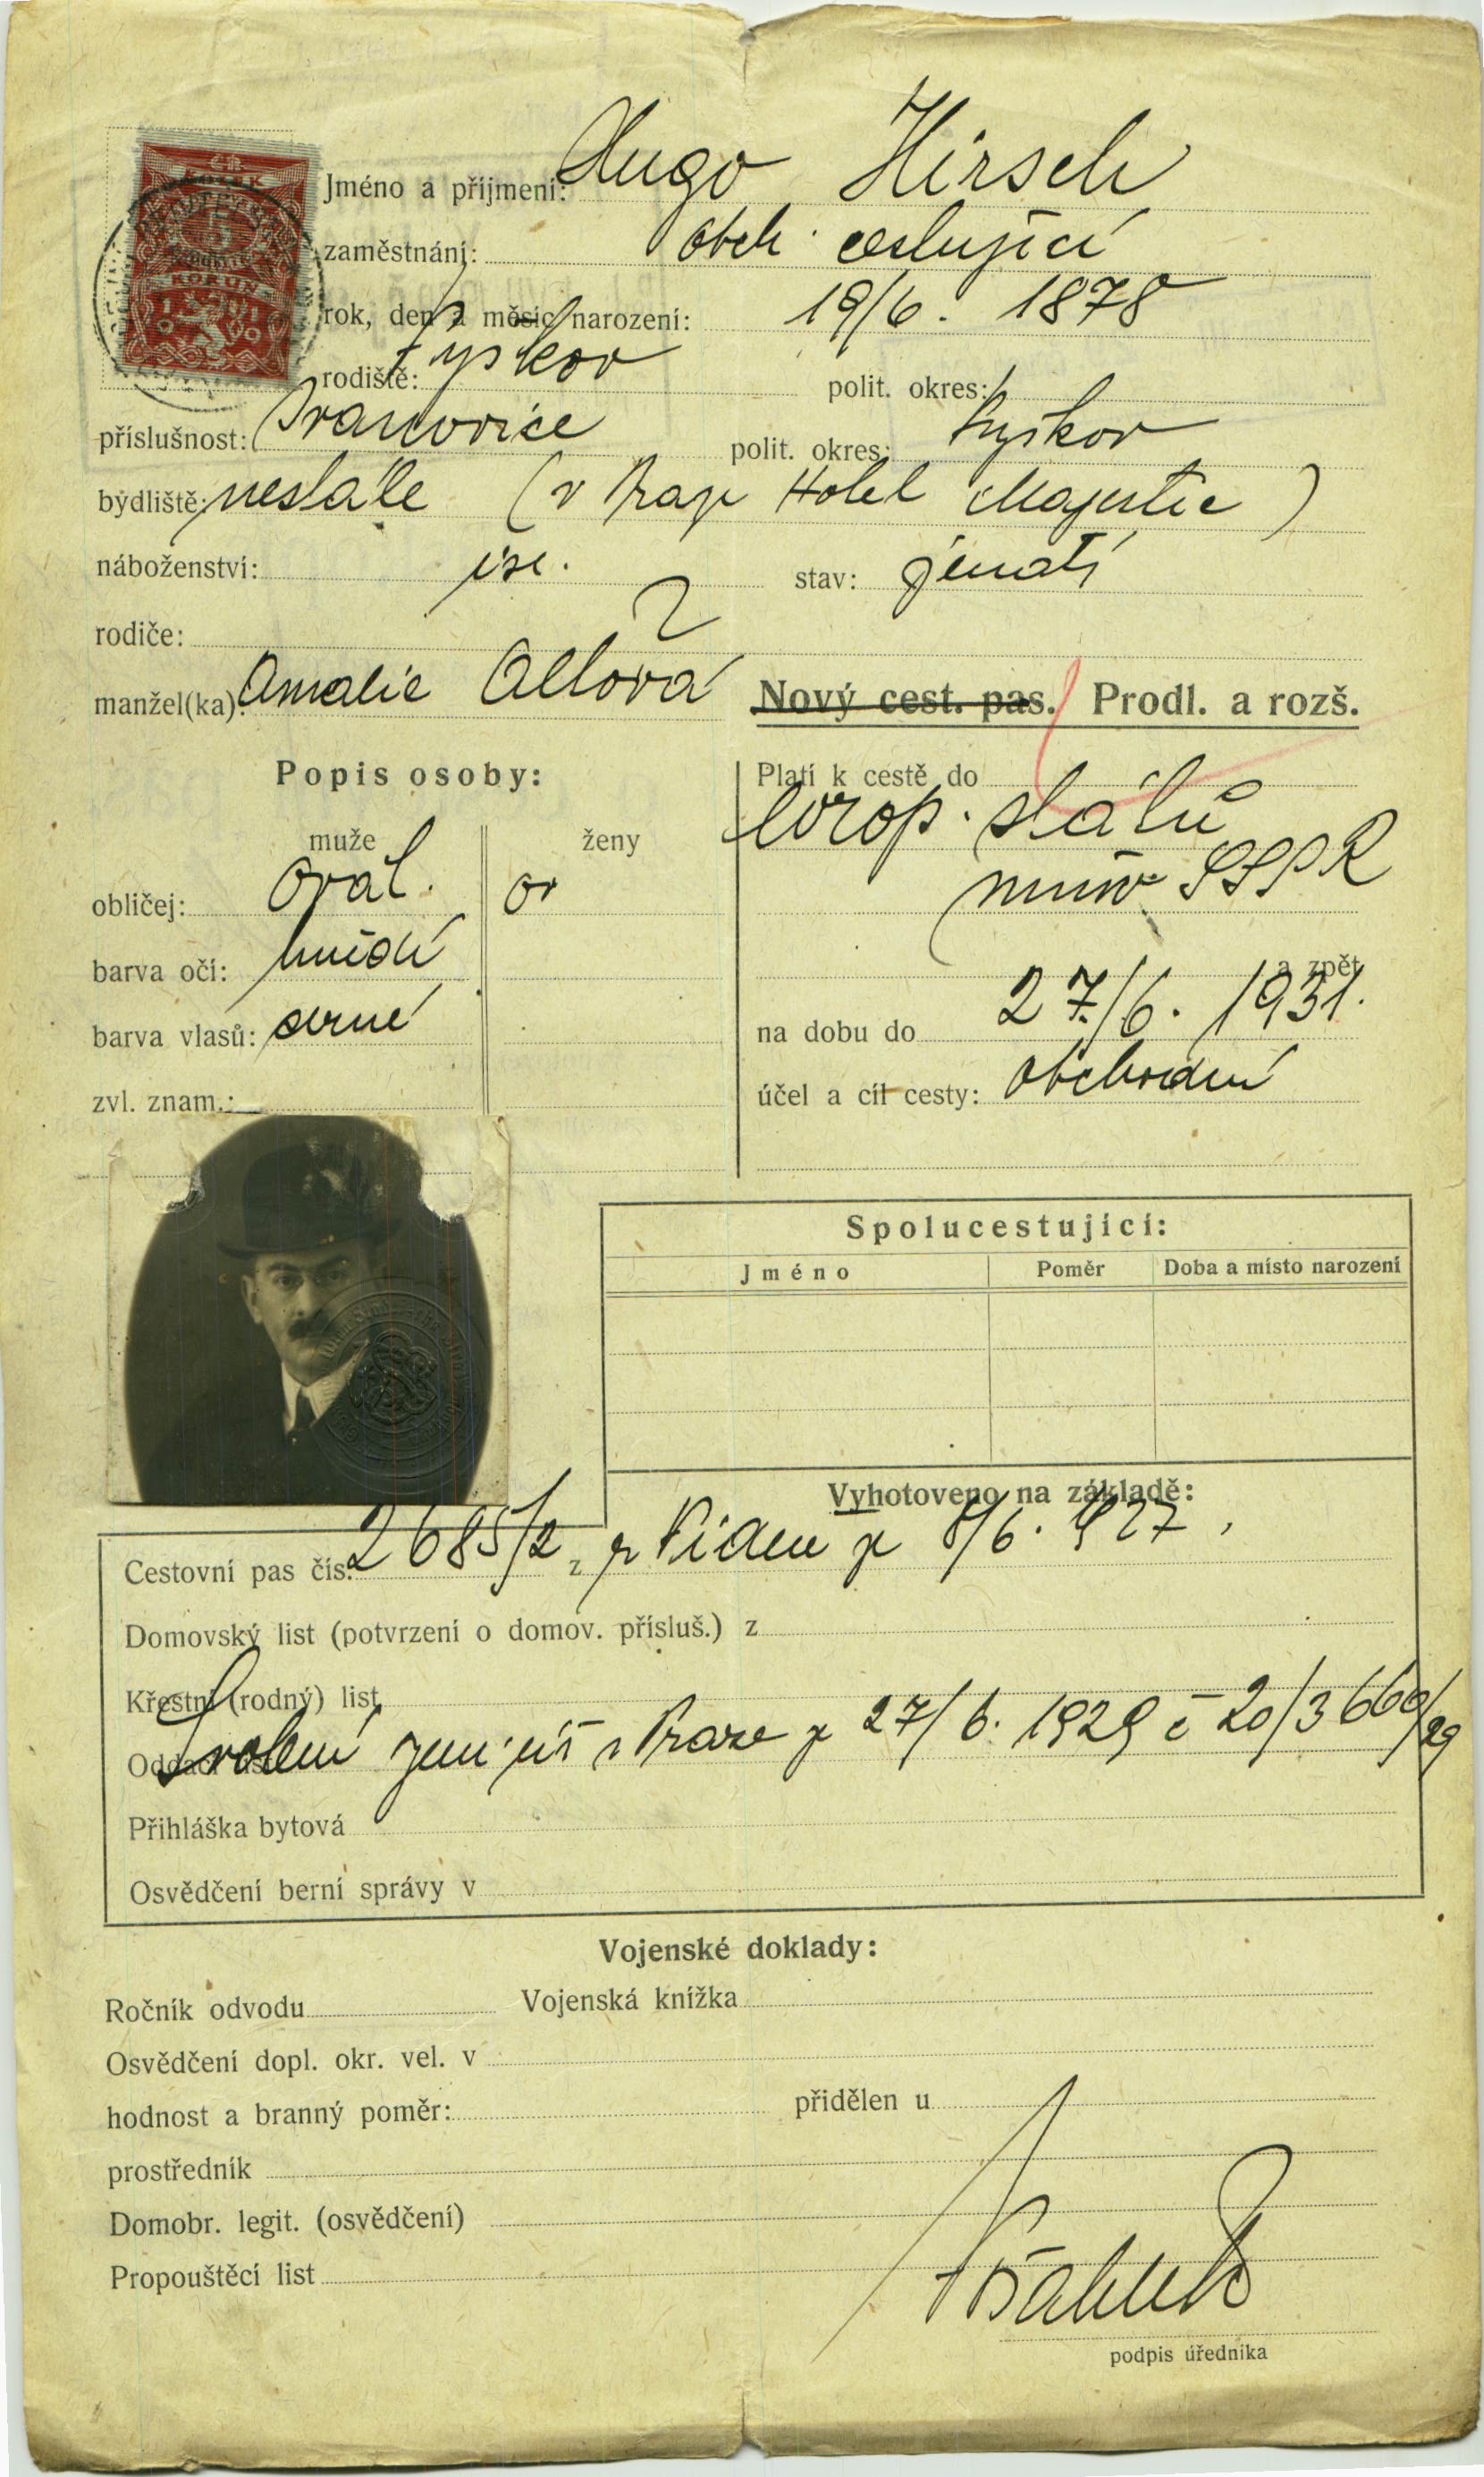 Jméno a příjmení: Hugo Hirsch
zaměstnání: obch. cestující
rok, den a měsíc narození: 19/6. 1878
rodiště: Vyškov polit. okres:
příslušnost: Ivanovice polit. okres: Vyškov
bydliště: nestálé (v Praze Hotel Majestic)
náboženství: isr. stav: ženatý
rodiče:
manžel(ka): Amalie
Nový cest. pas. Prodl. a rozš.
Popis osoby:
muže ženy
obličej: ovál. ov
barva očí: hnědé
barva vlasů: černé
zvl. znam.:
Platí k cestě do
evrop. států
mimo SSSR
a zpět
na dobu do 27./6. 1931.
účel a cíl cesty: obchodní
Spolucestující:
Jméno Poměr Doba a místo narození
Vyhotoveno na základě:
Cestovní pas čís. 2685/2 z Vídeň z 8/6. 1927
Domovský list (potvrzení o domov. přísluš.) z
Křestní (rodný) list
Svolení zem. v Praze z 27/6. 1929 č 20/3660/29
Přihláška bytová
Osvědčení berní správy v
Vojenské doklady:
Ročník odvodu Vojenská knížka
Osvědčení dopl. okr. vel. v
hodnost a branný poměr: přidělen u
prostředník
Domobr. legit. (osvědčení)
Propouštěcí list
podpis úředníka